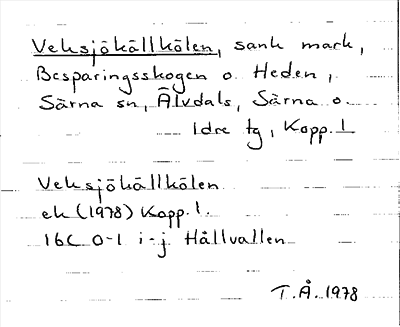 Veksjökällkölen, sank mark,
Besparingsskogen o. Heden,
Särna sn, Älvdals, Särna o.
Idre tg, Kopp. l
Veksjökällkölen
ek (1978) Kopp. l.
16C 0-1 i-j Hållvallen
T.Å. 1978